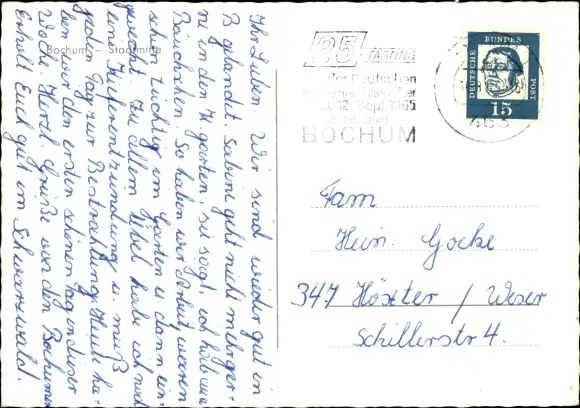 Bochum - Stadtmitte
Ihr Lieben. Wir sind wieder gut in
B gelandet. Sabine geht nicht mehr ger-
ne in den K.garten, sie sagt, ich hab
Bäuchchen. So haben wir derzeit,
schon tüchtig im Garten u. dann ein-
geweckt. Zu allem Übel habe ich noch
eine Kieferentzündung u. muß
jeden Tag zur Bestrahlung. Heute ha-
ben wir den ersten schönen Tag in dieser
Woche. Herzl. Grüße von den Bochumer
Erholt Euch gut im Schwarzwald.
25. TAGUNG
der Deutschen
12. Sept. 1965
BOCHUM
463
DEUTSCHE BUNDES POST
15
Fam
Hein. Gocke
347 Höxter / Weser
Schillerstr 4.